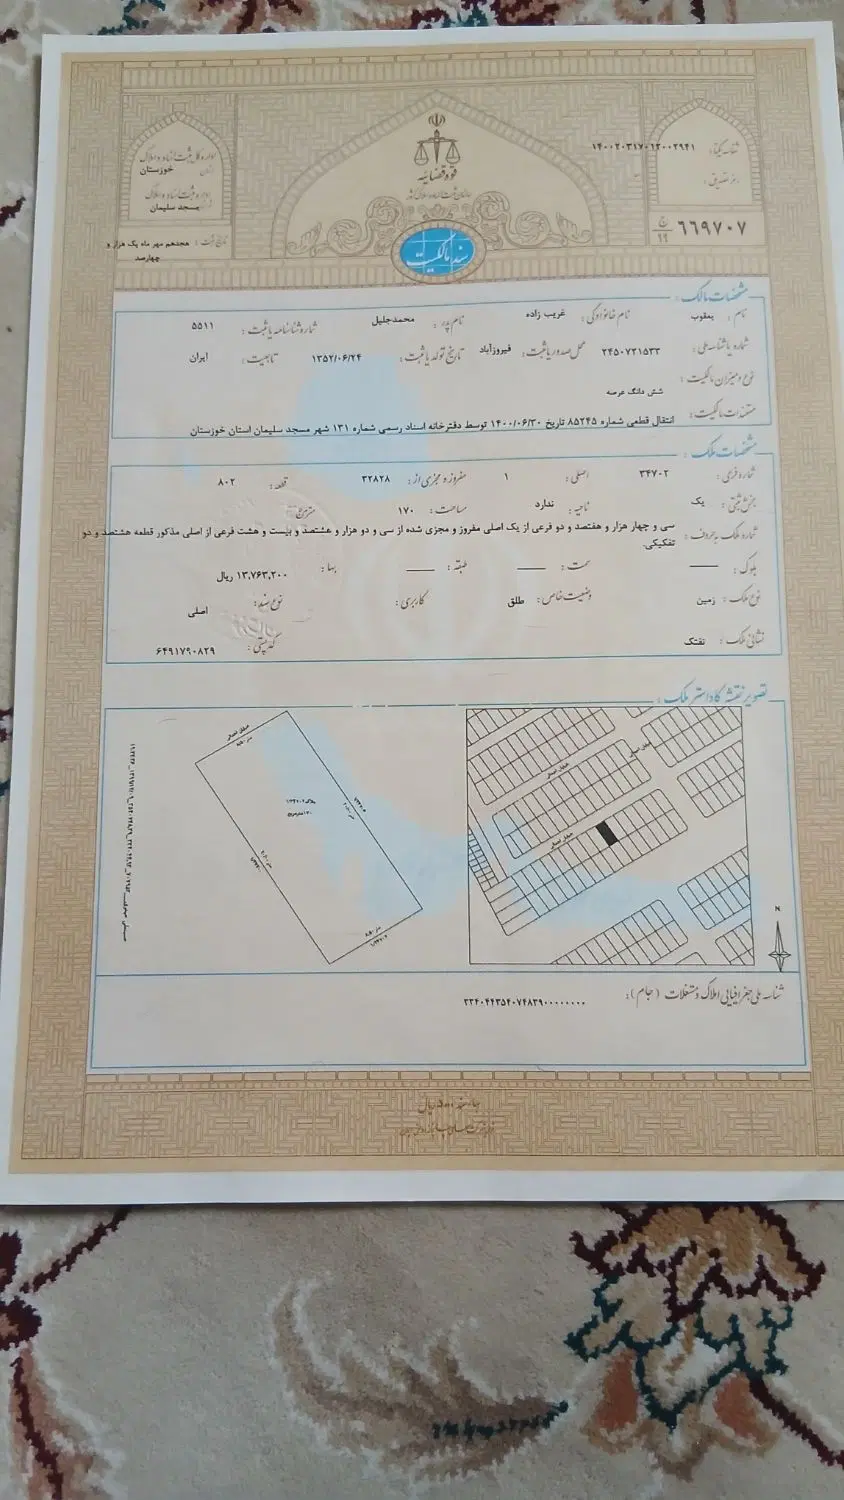 قوه قضائیه
سازمان ثبت اسناد و املاک کشور
سند مالکیت
شناسه یکتا: ۱۴۰۰۲۰۳۱۷۰۱۲۰۰۲۹۴۱
رمز تصدیق:
۶۶۹۷۰۷
اداره کل ثبت اسناد و املاک
استان خوزستان
اداره ثبت اسناد و املاک
مسجد سلیمان
تاریخ ثبت: هجدهم مهر ماه یک هزار و
چهارصد
مشخصات مالک:
نام: یعقوب نام خانوادگی: غریب زاده نام پدر: محمدجلیل شماره شناسنامه یا ثبت: ۵۵۱۱
شماره یا شناسه ملی: ۲۴۵۰۷۲۱۵۳۳ محل صدور یا ثبت: فیروزآباد تاریخ تولد یا ثبت: ۱۳۵۲/۰۶/۲۴ تابعیت: ایران
نوع و میزان مالکیت:
شش دانگ عرصه
مستندات مالکیت: انتقال قطعی شماره ۸۵۲۴۵ تاریخ ۱۴۰۰/۰۶/۳۰ توسط دفترخانه اسناد رسمی شماره ۱۳۱ شهر مسجد سلیمان استان خوزستان
مشخصات ملک:
شماره فرعی: ۳۴۷۰۲ اصلی: ۱ مفروز و مجزی از: ۳۲۸۲۸ قطعه: ۸۰۲
بخش ثبتی: یک ناحیه: ندارد مساحت: ۱۷۰ مترمربع
شماره ملک به حروف: سی و چهار هزار و هفتصد و دو فرعی از یک اصلی مفروز و مجزی شده از سی و دو هزار و هشتصد و بیست و هشت فرعی از اصلی مذکور قطعه هشتصد و دو
تفکیکی.
بلوک: —— سمت: —— طبقه: —— بها: ۱۳,۷۶۳,۲۰۰ ریال
نوع ملک: زمین وضعیت خاص: طلق کاربری: نوع سند: اصلی
نشانی ملک: نفتک کد پستی: ۶۴۹۱۷۹۰۸۲۹
تصویر نقشه کاداستر ملک:
خیابان احداثی
خیابان احداثی
خیابان احداثی
N
خیابان احداثی
شناسه ملی جغرافیایی املاک و مستغلات (جام): ۳۲۴۰۴۴۳۵۴۰۷۴۸۳۹۰۰۰۰۰۰۰۰